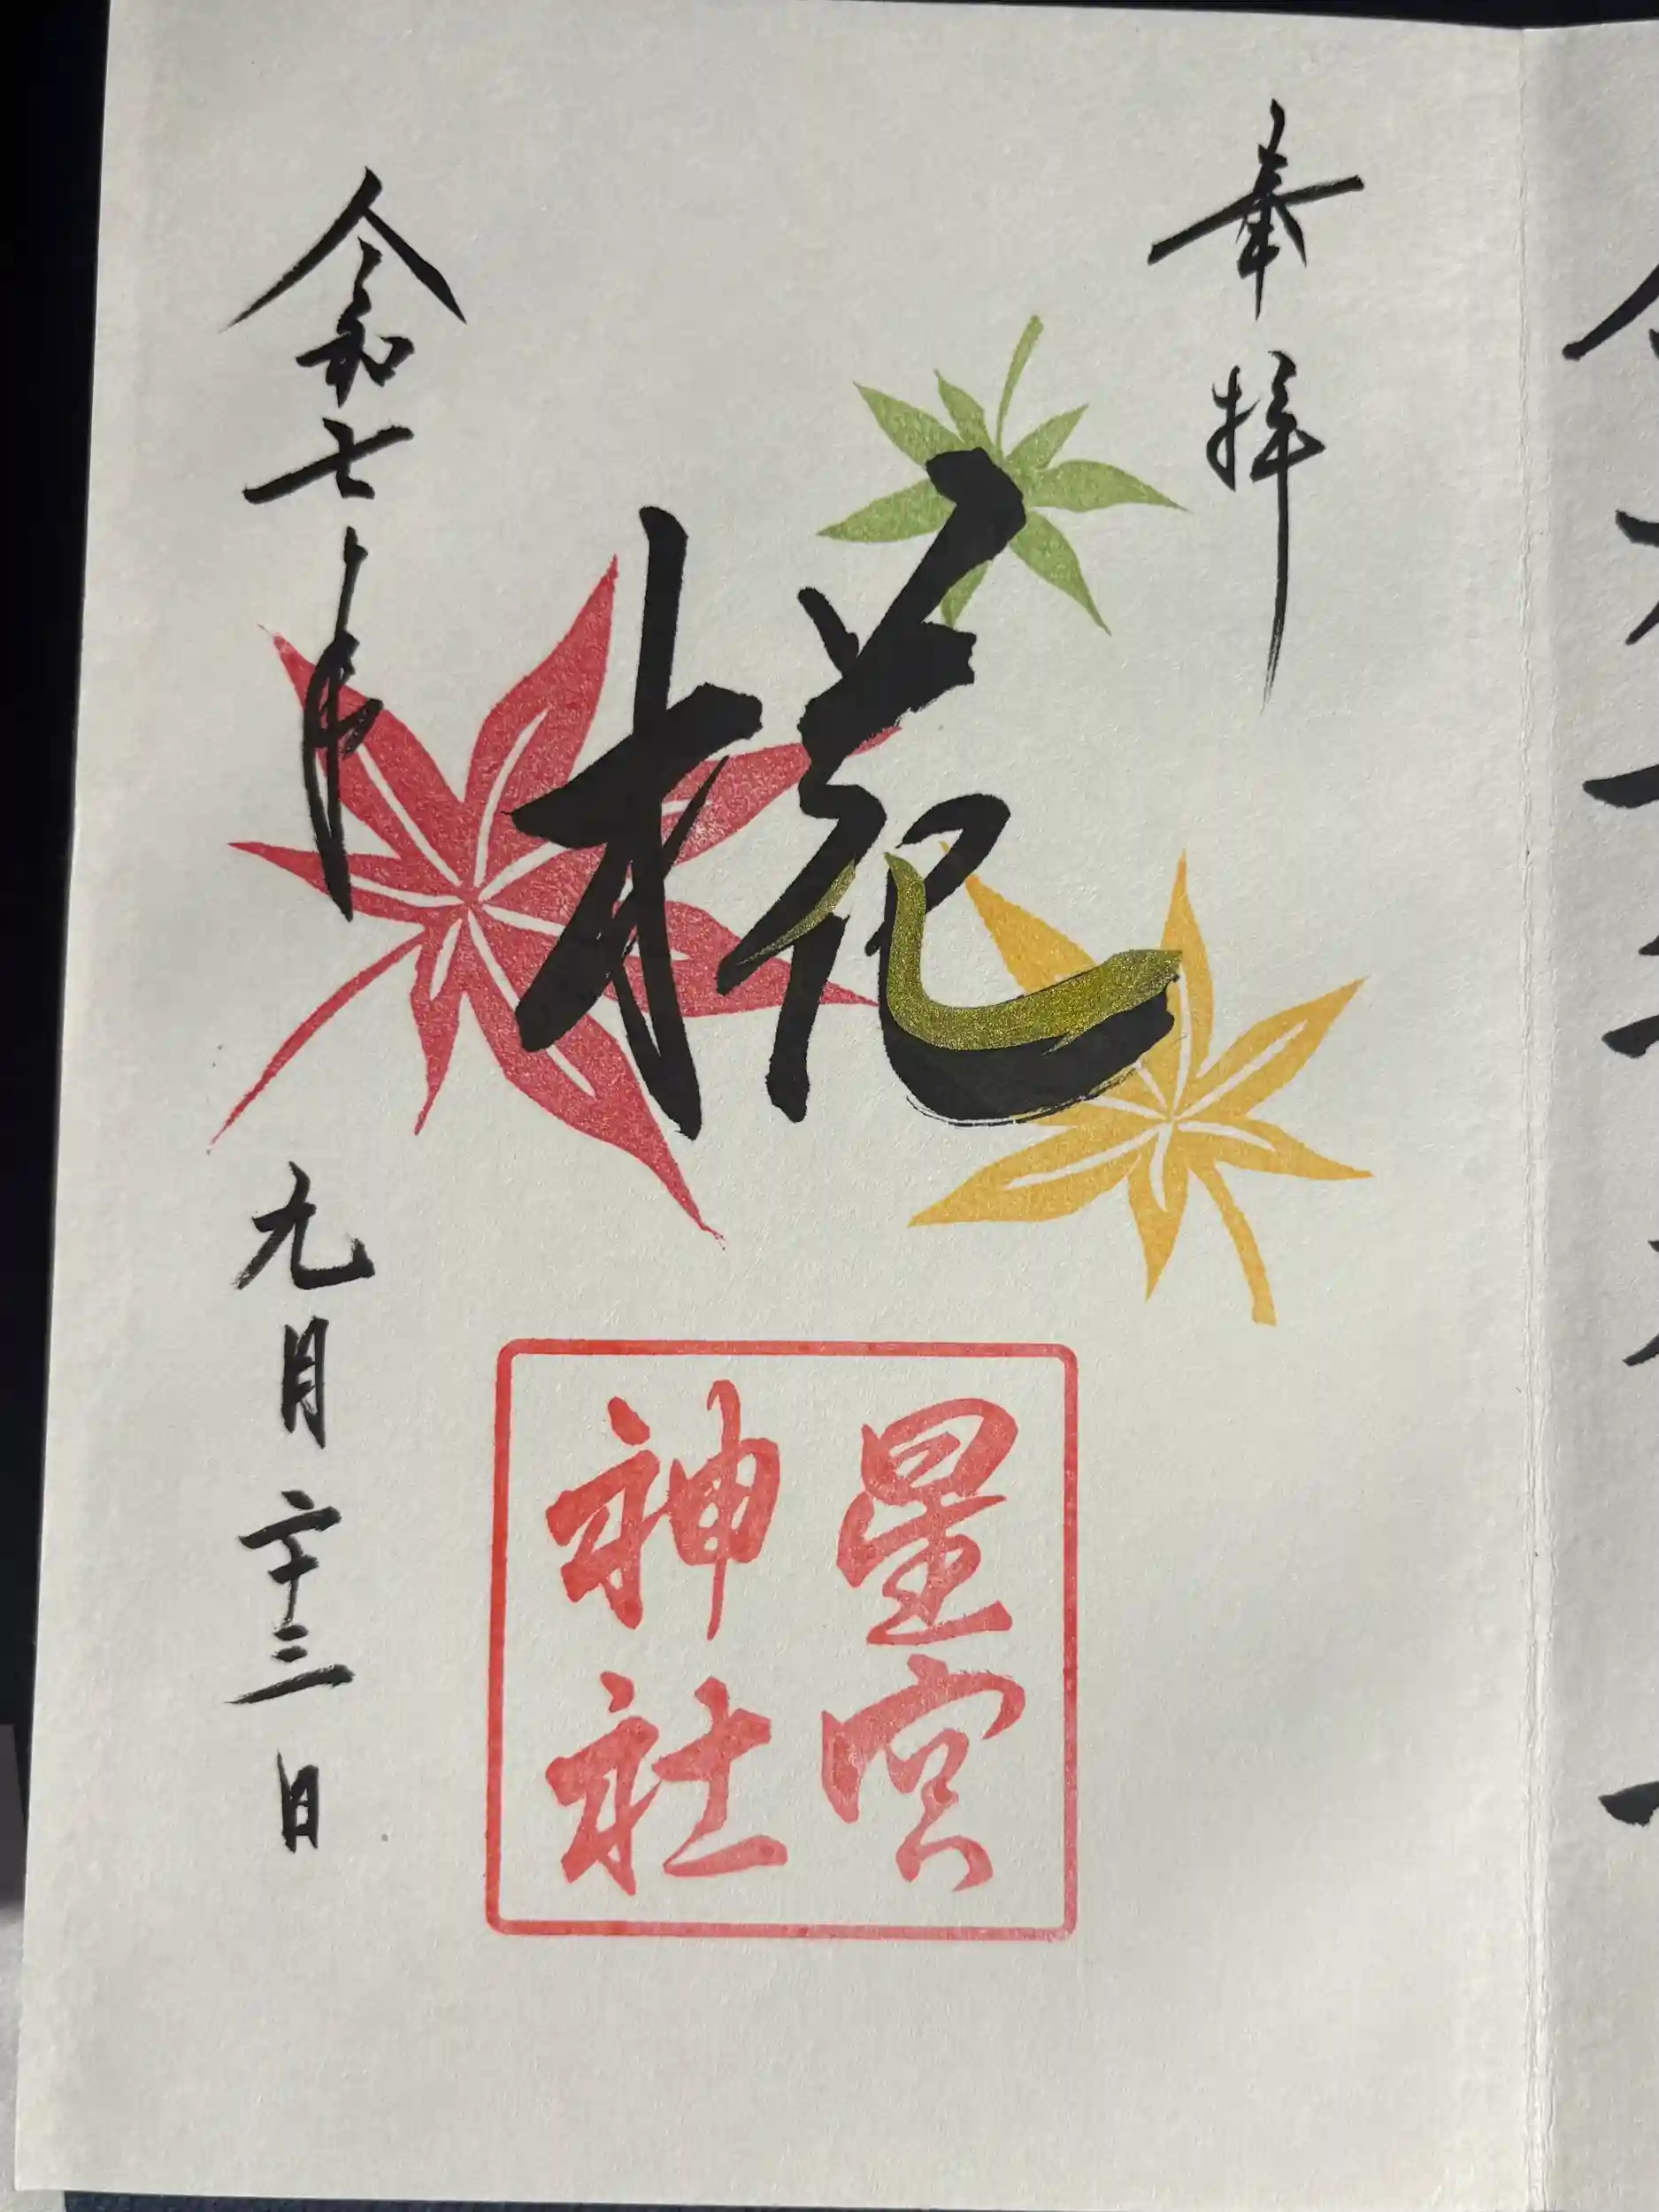 奉拝
椛
星宮
神社
令和七年九月二十三日